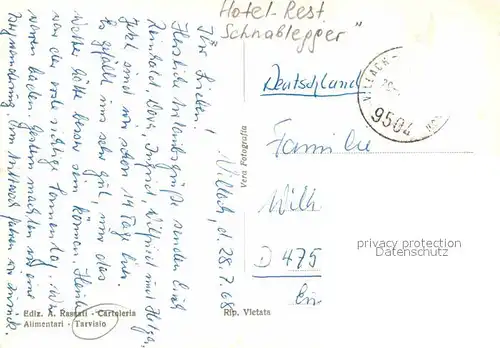 Hotel-Rest.
Schnablegger"
Villach, d. 28.7.68
Ihr Lieben!
Herzliche Urlaubsgrüße senden Euch
Reinhold, Dora, Ingrid, Wilfried und Helga,
jetzt sind wir schon 14 Tage hier.
Es gefällt uns sehr gut, nur das
Wetter hätte besser sein können. Heute
war der erste richtige Sonnentag. Wir
waren baden. Gestern machten wir eine
am Mittwoch fahren wir zurück.
Vera Fotografia
Ediz. A. Rassati - Cartoleria
Alimentari - Tarvisio
Rip. Vietata
Deutschland
VILLACH
9504
Familie
Wilh
D 475
privacy protection
Datenschutz